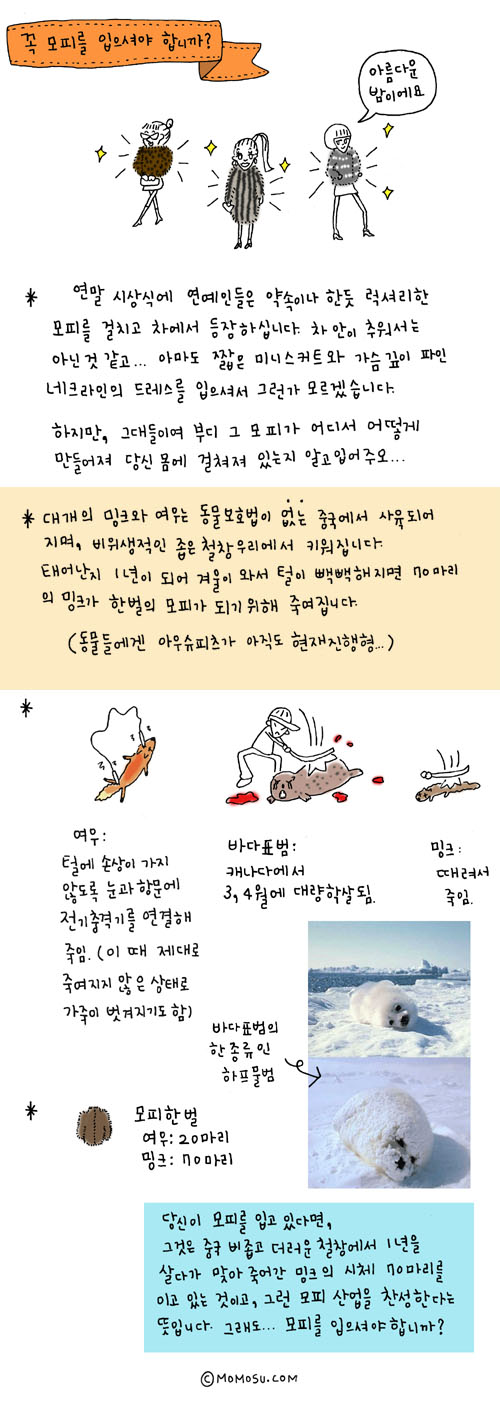 꼭 모피를 입으셔야 합니까?
아름다운
밤이에요
* 연말 시상식에 연예인들은 약속이나 한듯 럭셔리한
모피를 걸치고 차에서 등장하십니다. 차 안이 추워서는
아닌 것 같고... 아마도 짧은 미니스커트와 가슴 깊이 파인
네크라인의 드레스를 입으셔서 그런가 모르겠습니다.
하지만, 그대들이여 부디 그 모피가 어디서 어떻게
만들어져 당신 몸에 걸쳐져 있는지 알고 입어주오...
* 대개의 밍크와 여우는 동물보호법이 없는 중국에서 사육되어
지며, 비위생적인 좁은 철창우리에서 키워집니다.
태어난지 1년이 되어 겨울이 와서 털이 빽빽해지면 70마리
의 밍크가 한벌의 모피가 되기 위해 죽여집니다.
(동물들에겐 아우슈피츠가 아직도 현재진행형...)
*
여우:
털에 손상이 가지
않도록 눈과 항문에
전기충격기를 연결해
죽임. (이 때 제대로
죽여지지 않은 상태로
가죽이 벗겨지기도 함)
바다표범:
캐나다에서
3, 4월에 대량학살됨.
밍크:
때려서
죽임.
바다표범의
한 종류인
하프물범
* 모피한벌
여우: 20마리
밍크: 70마리
당신이 모피를 입고 있다면,
그것은 중국 비좁고 더러운 철창에서 1년을
살다가 맞아 죽어간 밍크의 시체 70마리를
이고 있는 것이고, 그런 모피 산업을 찬성한다는
뜻입니다. 그래도... 모피를 입으셔야 합니까?
©MOMOSU.COM